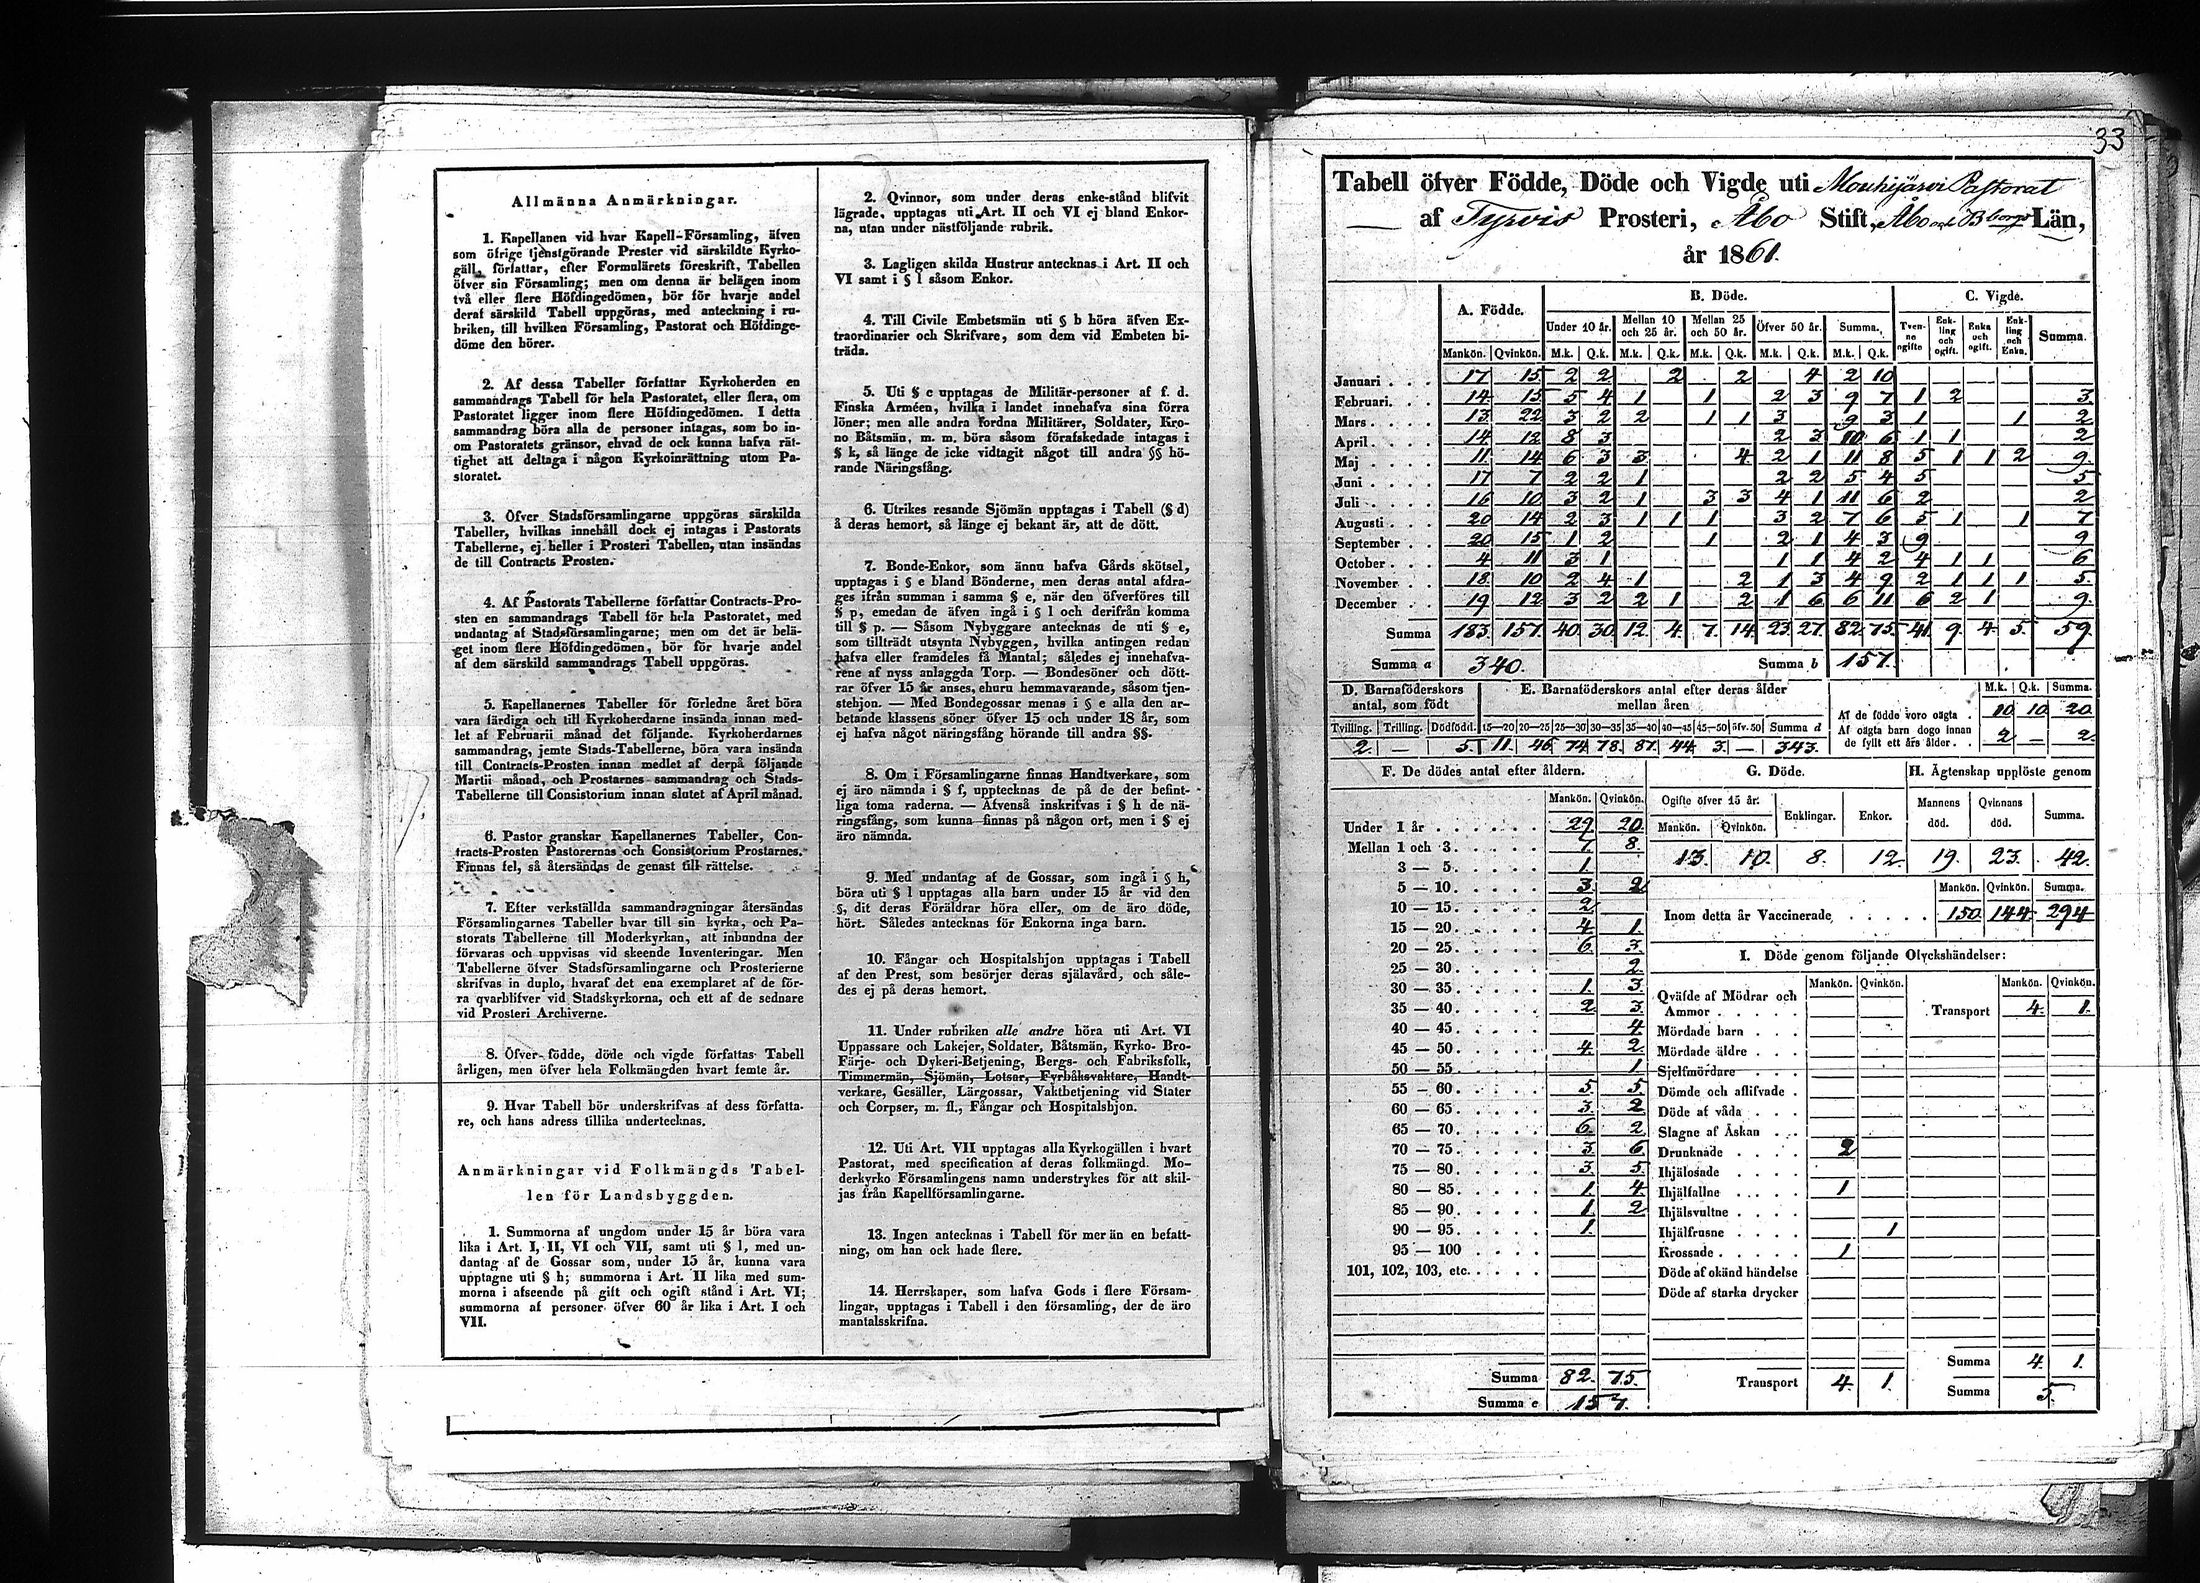 Allmänna Anmärkningar.
1. Kapellanen vid hvar Kapell-Församling, äfven
som öfrige tjenstgörande Prester vid särskildte Kyrko-
gäll, författar, efter Formulärets föreskrift, Tabellen
öfver sin Församling; men om denna är belägen inom
två eller flere Höfdingedömen, bör för hvarje andel
deraf särskild Tabell uppgöras, med anteckning i ru-
briken, till hvilken Församling, Pastorat och Höfdinge-
döme den hörer.
2. Af dessa Tabeller författar Kyrkoherden en
sammandrags Tabell för hela Pastoratet, eller flera, om
Pastoratet ligger inom flere Höfdingedömen. I detta
sammandrag böra alla de personer intagas, som bo in-
om Pastoratets gränsor, ehvad de ock kunna hafva rät-
tighet att deltaga i någon Kyrkoinrättning utom Pa-
storatet.
3. Öfver Stadsförsamlingarne uppgöras särskilda
Tabeller, hvilkas innehåll dock ej intagas i Pastorats
Tabellerne, ej heller i Prosteri Tabellen, utan insändas
de till Contracts Prosten.
4. Af Pastorats Tabellerne författar Contracts-Pro-
sten en sammandrags Tabell för hela Pastoratet, med
undantag af Stadsförsamlingarne; men om det är belä-
get inom flere Höfdingedömen, bör för hvarje andel
af dem särskild sammandrags Tabell uppgöras.
5. Kapellanernes Tabeller för förledne året böra
vara färdiga och till Kyrkoherdarne insända innan med-
let af Februarii månad det följande. Kyrkoherdarnes
sammandrag, jemte Stads-Tabellerne, böra vara insända
till Contracts-Prosten innan medlet af derpå följande
Martii månad, och Prostarnes sammandrag och Stads-
Tabellerne till Consistorium innan slutet af April månad.
6. Pastor granskar Kapellanernes Tabeller, Con-
tracts-Prosten Pastorernas och Consistorium Prostarnes.
Finnas fel, så återsändas de genast till rättelse.
7. Efter verkställda sammandragningar återsändas
Församlingarnes Tabeller hvar till sin kyrka, och Pa-
storats Tabellerne till Moderkyrkan, att inbundna der
förvaras och uppvisas vid skeende Inventeringar. Men
Tabellerne öfver Stadsförsamlingarne och Prosterierne
skrifvas in duplo, hvaraf det ena exemplaret af de för-
ra qvarblifver vid Stadskyrkorna, och ett af de sednare
vid Prosteri Archiverne.
8. Öfver födde, döde och vigde författas Tabell
årligen, men öfver hela Folkmängden hvart femte år.
9. Hvar Tabell bör underskrifvas af dess författa-
re, och hans adress tillika undertecknas.
Anmärkningar vid Folkmängds Tabel-
len för Landsbyggden.
1. Summorna af ungdom under 15 år böra vara
lika i Art. I, II, VI och VII, samt uti § l, med un-
dantag af de Gossar som, under 15 år, kunna vara
upptagne uti § h; summorna i Art. II lika med sum-
morna i afseende på gift och ogift stånd i Art. VI;
summorna af personer öfver 60 år lika i Art. I och
VII.
2. Qvinnor, som under deras enke-stånd blifvit
lägrade, upptagas uti Art. II och VI ej bland Enkor-
na, utan under nästföljande rubrik.
3. Lagligen skilda Hustrur antecknas i Art. II och
VI samt i § l såsom Enkor.
4. Till Civile Embetsmän uti § b höra äfven Ex-
traordinarier och Skrifvare, som dem vid Embeten bi-
träda.
5. Uti § c upptagas de Militär-personer af f. d.
Finska Arméen, hvilka i landet innehafva sina förra
löner; men alle andra fordna Militärer, Soldater, Kro-
no Båtsmän, m. m. böra såsom förafskedade intagas i
§ k, så länge de icke vidtagit något till andra §§ hö-
rande Näringsfång.
6. Utrikes resande Sjömän upptagas i Tabell (§ d)
å deras hemort, så länge ej bekant är, att de dött.
7. Bonde-Enkor, som ännu hafva Gårds skötsel,
upptagas i § e bland Bönderne, men deras antal afdra-
ges ifrån summan i samma § e, när den öfverföres till
§ p, emedan de äfven ingå i § l och derifrån komma
till § p. — Såsom Nybyggare antecknas de uti § e,
som tillträdt utsynta Nybyggen, hvilka antingen redan
hafva eller framdeles få Mantal; således ej innehafva-
rene af nyss anlaggda Torp. — Bondesöner och dött-
rar öfver 15 år anses, ehuru hemmavarande, såsom tjen-
stehjon. — Med Bondegossar menas i § e alla den ar-
betande klassens söner öfver 15 och under 18 år, som
ej hafva något näringsfång hörande till andra §§.
8. Om i Församlingarne finnas Handtverkare, som
ej äro nämnda i § f, upptecknas de på de der befint-
liga toma raderna. — Äfvenså inskrifvas i § h de nä-
ringsfång, som kunna finnas på någon ort, men i § ej
äro nämnda.
9. Med undantag af de Gossar, som ingå i § h,
böra uti § l upptagas alla barn under 15 år vid den
§, dit deras Föräldrar höra eller, om de äro döde,
hört. Således antecknas för Enkorna inga barn.
10. Fångar och Hospitalshjon upptagas i Tabell
af den Prest, som besörjer deras själavård, och såle-
des ej på deras hemort.
11. Under rubriken alle andre höra uti Art. VI
Uppassare och Lakejer, Soldater, Båtsmän, Kyrko- Bro-
Färje- och Dykeri-Betjening, Bergs- och Fabriksfolk,
Timmermän, Sjömän, Lotsar, Fyrbåksvaktare, Handt-
verkare, Gesäller, Lärgossar, Vaktbetjening vid Stater
och Corpser, m. fl., Fångar och Hospitalshjon.
12. Uti Art. VII upptagas alla Kyrkogällen i hvart
Pastorat, med specification af deras folkmängd. Mo-
derkyrko Församlingens namn understrykes för att skil-
jas från Kapellförsamlingarne.
13. Ingen antecknas i Tabell för mer än en befatt-
ning, om han ock hade flere.
14. Herrskaper, som hafva Gods i flere Försam-
lingar, upptagas i Tabell i den församling, der de äro
mantalsskrifna.
33
Tabell öfver Födde, Döde och Vigde uti Mouhijärvi Pastorat
af Tyrvis Prosteri, Åbo Stift, Åbo och B borgs Län,
år 1861.
A. Födde. B. Döde. C. Vigde.
Under 10 år. Mellan 10 och 25 år. Mellan 25 och 50 år. Öfver 50 år. Summa. Tvenne ogifte Enkling och ogift. Enka och ogift. Enkling och Enka. Summa.
Mankön. Qvinkön. M.k. Q.k. M.k. Q.k. M.k. Q.k. M.k. Q.k. M.k. Q.k.
Januari . . . 17 15 2 2 2 2 4 2 10
Februari. . . 14 15 5 4 1 1 2 3 9 7 1 2 3
Mars . . . . 13 22 3 2 2 1 1 3 9 3 1 1 2
April . . . . 14 12 8 3 2 3 10 6 1 1 2
Maj . . . . 11 14 6 3 3 4 2 1 11 8 5 1 1 2 9
Juni . . . . 17 7 2 2 1 2 2 5 4 5 5
Juli . . . . 16 10 3 2 1 3 3 4 1 11 6 2 2
Augusti . . . 20 14 2 3 1 1 1 3 2 7 6 5 1 1 7
September . . 20 15 1 2 1 2 1 4 3 9 9
October . . . 4 11 3 1 1 1 4 2 4 1 1 6
November . . 18 10 2 4 1 2 1 3 4 9 2 1 1 1 5
December . . 19 12 3 2 2 1 2 1 6 6 11 6 2 1 9
Summa 183. 157. 40. 30. 12. 4. 7. 14. 23. 27. 82. 75. 41. 9. 4. 5. 59.
Summa a 340. Summa b 157.
D. Barnaföderskors antal, som födt
Tvilling. Trilling. Dödfödd.
2. — 5.
E. Barnaföderskors antal efter deras ålder mellan åren
15—20 20—25 25—30 30—35 35—40 40—45 45—50 öfv. 50 Summa d
11. 46. 74. 78. 87. 44. 3. — 343.
M.k. Q.k. Summa.
Af de födde voro oägta . 10 10 20
Af oägta barn dogo innan
de fyllt ett års ålder. . 2 — 2.
F. De dödes antal efter åldern.
Mankön. Qvinkön.
Under 1 år . . . . . . 29 20.
Mellan 1 och 3. . . . . 7. 8.
3 — 5. . . . . 1.
5 — 10. . . . . 3. 2
10 — 15. . . . . 2
15 — 20. . . . . 4 1.
20 — 25. . . . . 6. 3
25 — 30. . . . . 2.
30 — 35. . . . . 1. 3.
35 — 40. . . . . 2 3.
40 — 45. . . . . 4
45 — 50. . . . . 4. 2
50 — 55. . . . . 1
55 — 60. . . . . 5. 5.
60 — 65. . . . . 3. 2
65 — 70. . . . . 6. 2
70 — 75. . . . . 3. 6.
75 — 80. . . . . 3. 5.
80 — 85. . . . . 1. 4.
85 — 90. . . . . 1. 2
90 — 95. . . . . 1.
95 — 100 . . . . .
101, 102, 103, etc. . . . .
Summa 82. 75.
Summa e 157.
G. Döde.
Ogifte öfver 15 år. Enklingar. Enkor.
Mankön. Qvinkön.
13. 10. 8. 12.
H. Ägtenskap upplöste genom
Mannens död. Qvinnans död. Summa.
19. 23. 42.
Mankön. Qvinkön. Summa.
Inom detta år Vaccinerade . . . . . 150. 144. 294
I. Döde genom följande Olyckshändelser:
Mankön. Qvinkön. Mankön. Qvinkön.
Qväfde af Mödrar och
Ammor . . . . . Transport 4. 1.
Mördade barn . . .
Mördade äldre . . .
Sjelfmördare . . .
Dömde och aflifvade .
Döde af våda . . .
Slagne af Åskan . . .
Drunknade . . . . 2
Ihjälosade . . . .
Ihjälfallne . . . . 1
Ihjälsvultne . . . .
Ihjälfrusne . . . . 1
Krossade . . . . . 1
Döde af okänd händelse
Döde af starka drycker
Summa 4. 1.
Transport 4. 1. Summa 5.